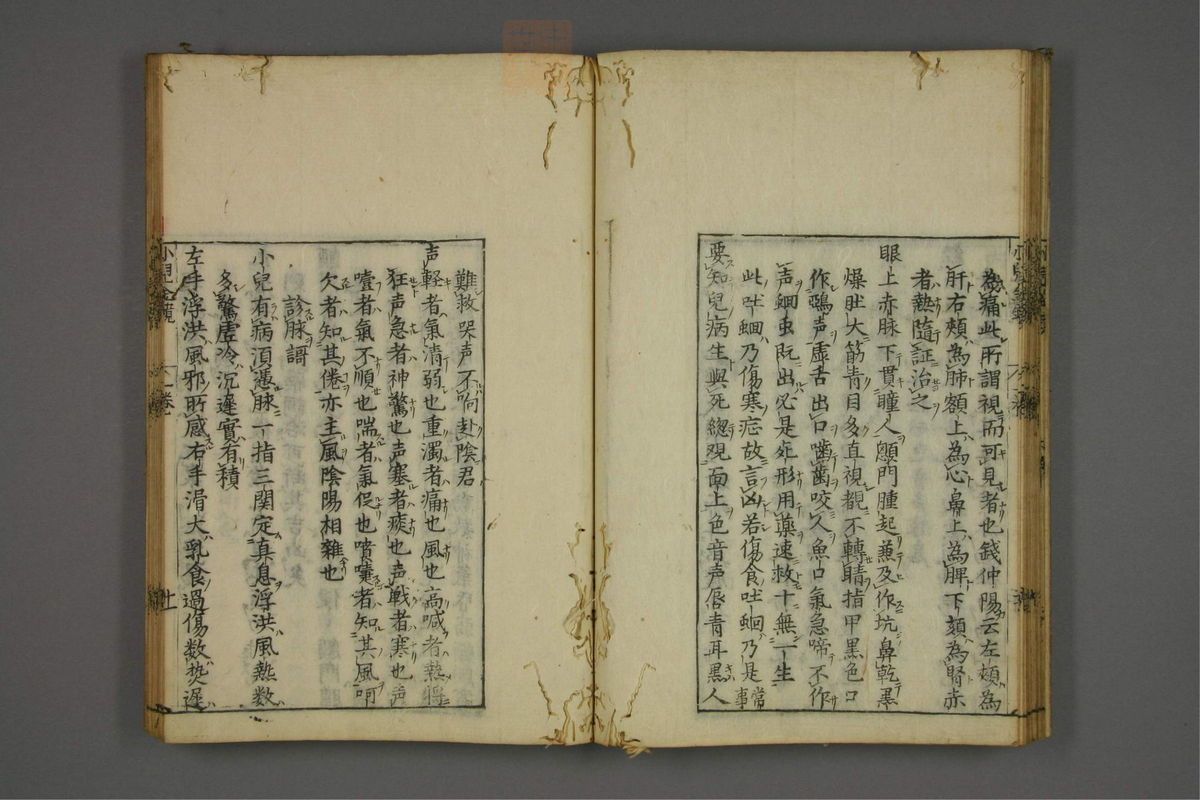 為痛此所謂視而可見者也錢仲陽云左頰為
肝右頰為肺額上為心鼻上為脾下頦為腎赤
者熱隨証治之
眼上赤脉下貫瞳人顖門腫起兼及作坑鼻乾黒
燥肚大筋青目多直視覩不轉睛指甲黒色口
作鵶声虚舌出口嚙歯咬人魚口氣急啼不作
声蛔虫既出必是死形用藥速救十無一生
此吐蛔乃傷寒症故言凶若傷食吐蛔乃是常事
要知兒病生與死緫覌面上色音声唇青耳黒人
難救哭声不响赴陰君
声軽者氣清弱也重濁者痛也風也高喊者熱將
狂声急者神驚也声塞者痰也声戦者寒也声
噎者氣不順也喘者氣促也噴嚏者知其風呵
欠者知其倦亦主風陰陽相雜也
診脉謌
小兒有病須憑脉一指三関定真息浮洪風熱数
多驚虚冷沉遲實有積
左手浮洪風邪所感右手滑大乳食過傷数热遲